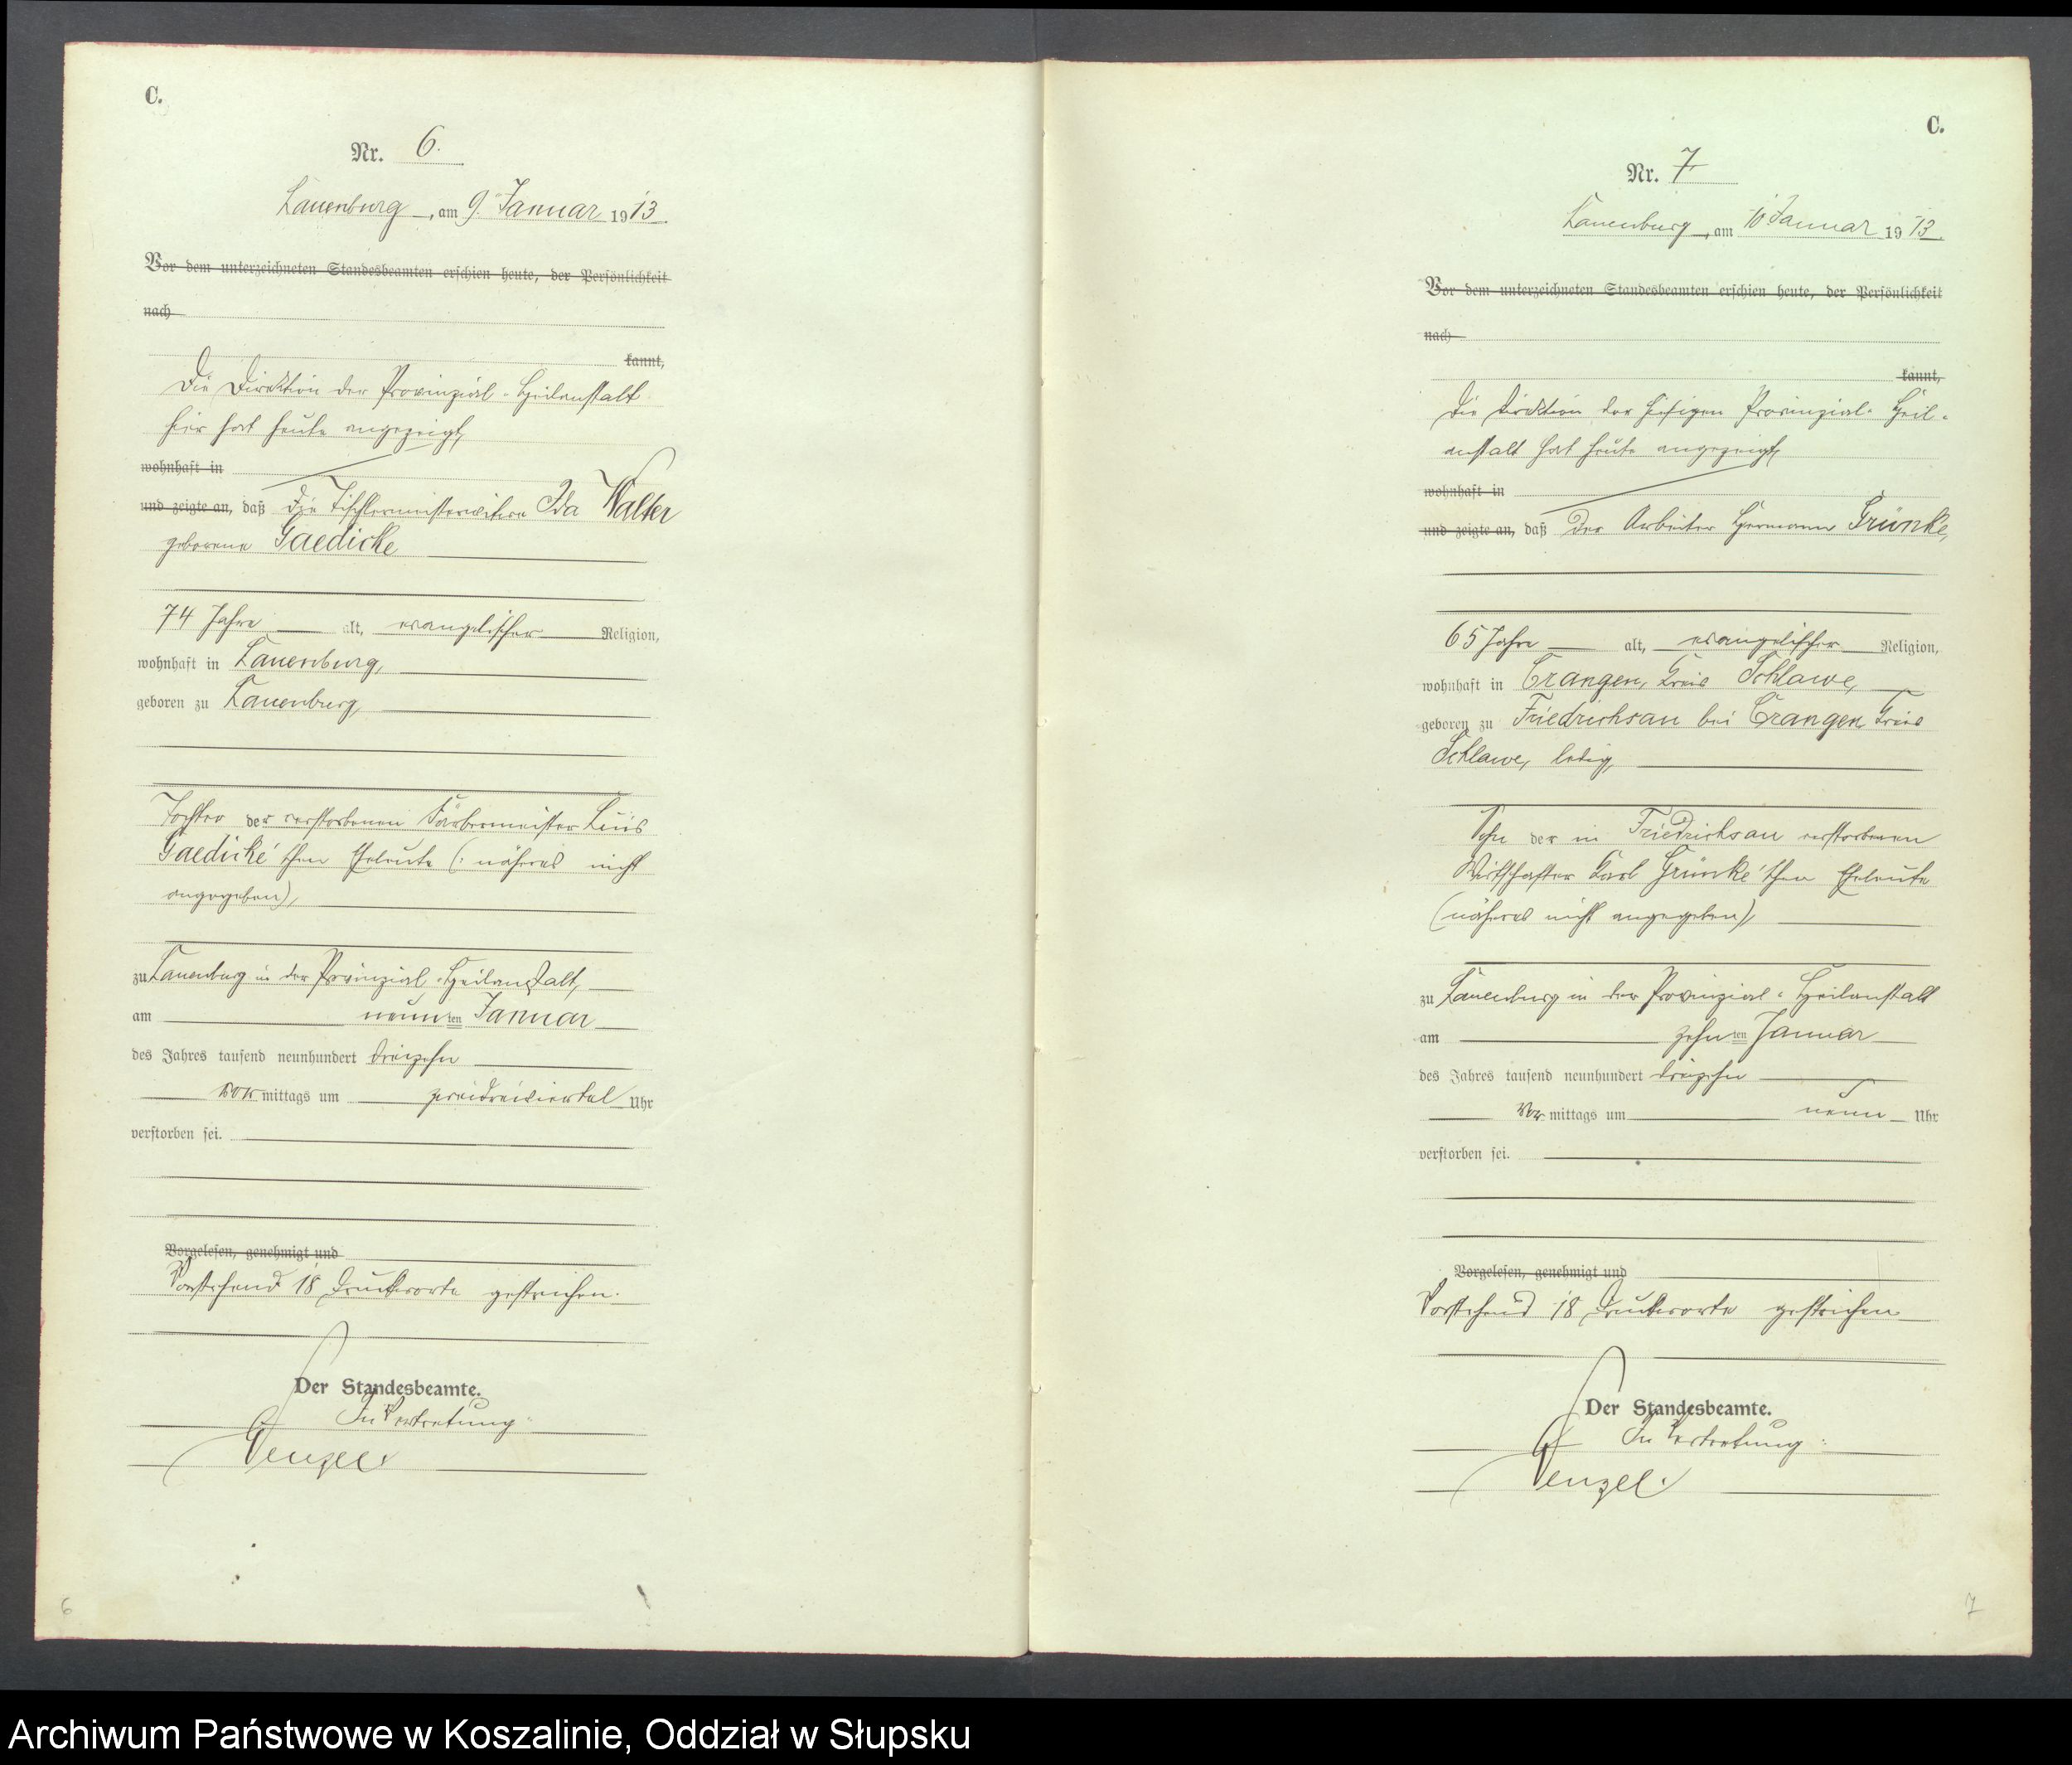 C.
Nr. 6.
Lauenburg, am 9. Januar 1913.
Vor dem unterzeichneten Standesbeamten erschien heute, der Persönlichkeit
nach
kannt,
Die Direktion der Provinzial-Heilanstalt
hier hat heute angezeigt,
wohnhaft in
und zeigte an, daß die Tischlermeisterwitwe Ida Walter
geborene Gaedicke
74 Jahre alt, evangelischer Religion,
wohnhaft in Lauenburg,
geboren zu Lauenburg,
Tochter der verstorbenen Färbermeister
Gaedicke'schen Eheleute (: näheres nicht
angegeben),
zu Lauenburg in der Provinzial-Heilanstalt,
am neunten Januar
des Jahres tausend neunhundert dreizehn
vormittags um zweidreiviertel Uhr
verstorben sei.
Vorgelesen, genehmigt und
Vorstehend 18 Druckworte gestrichen.
Der Standesbeamte.
In Vertretung:
Wenzel.
6
C.
Nr. 7
Lauenburg, am 10 Januar 1913.
Vor dem unterzeichneten Standesbeamten erschien heute, der Persönlichkeit
nach
kannt,
Die Direktion der hiesigen Provinzial-Heil-
anstalt hat heute angezeigt,
wohnhaft in
und zeigte an, daß der Arbeiter Hermann Grünke,
65 Jahre alt, evangelischer Religion,
wohnhaft in Crangen, Kreis Schlawe,
geboren zu Friedrichsau bei Crangen Kreis
Schlawe, ledig,
Sohn der in Friedrichsau verstorbenen
Wirtschafter Karl Grünke'schen Eheleute
(näheres nicht angegeben),
zu Lauenburg in der Provinzial-Heilanstalt
am zehnten Januar
des Jahres tausend neunhundert dreizehn
Vormittags um neun Uhr
verstorben sei.
Vorgelesen, genehmigt und
Vorstehend 18 Druckworte gestrichen
Der Standesbeamte.
In Vertretung:
Wenzel.
7
Archiwum Państwowe w Koszalinie, Oddział w Słupsku